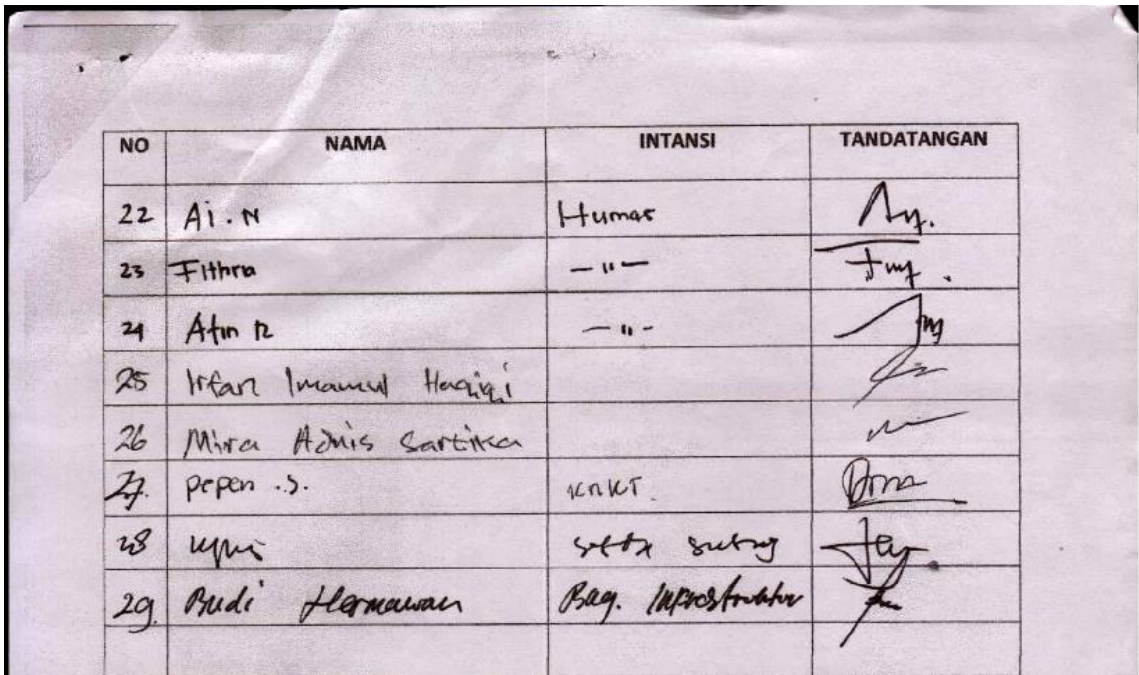 NO NAMA INTANSI TANDATANGAN
22 Ai. N Humas
23 Fithra — " —
24 Afin R — " -
25 Irfan Imamul Haqiqi
26 Mira Adnis Sartika
27. pepen .S. KNKT.
28
29. Budi Hermawan Bag. Infrastruktur